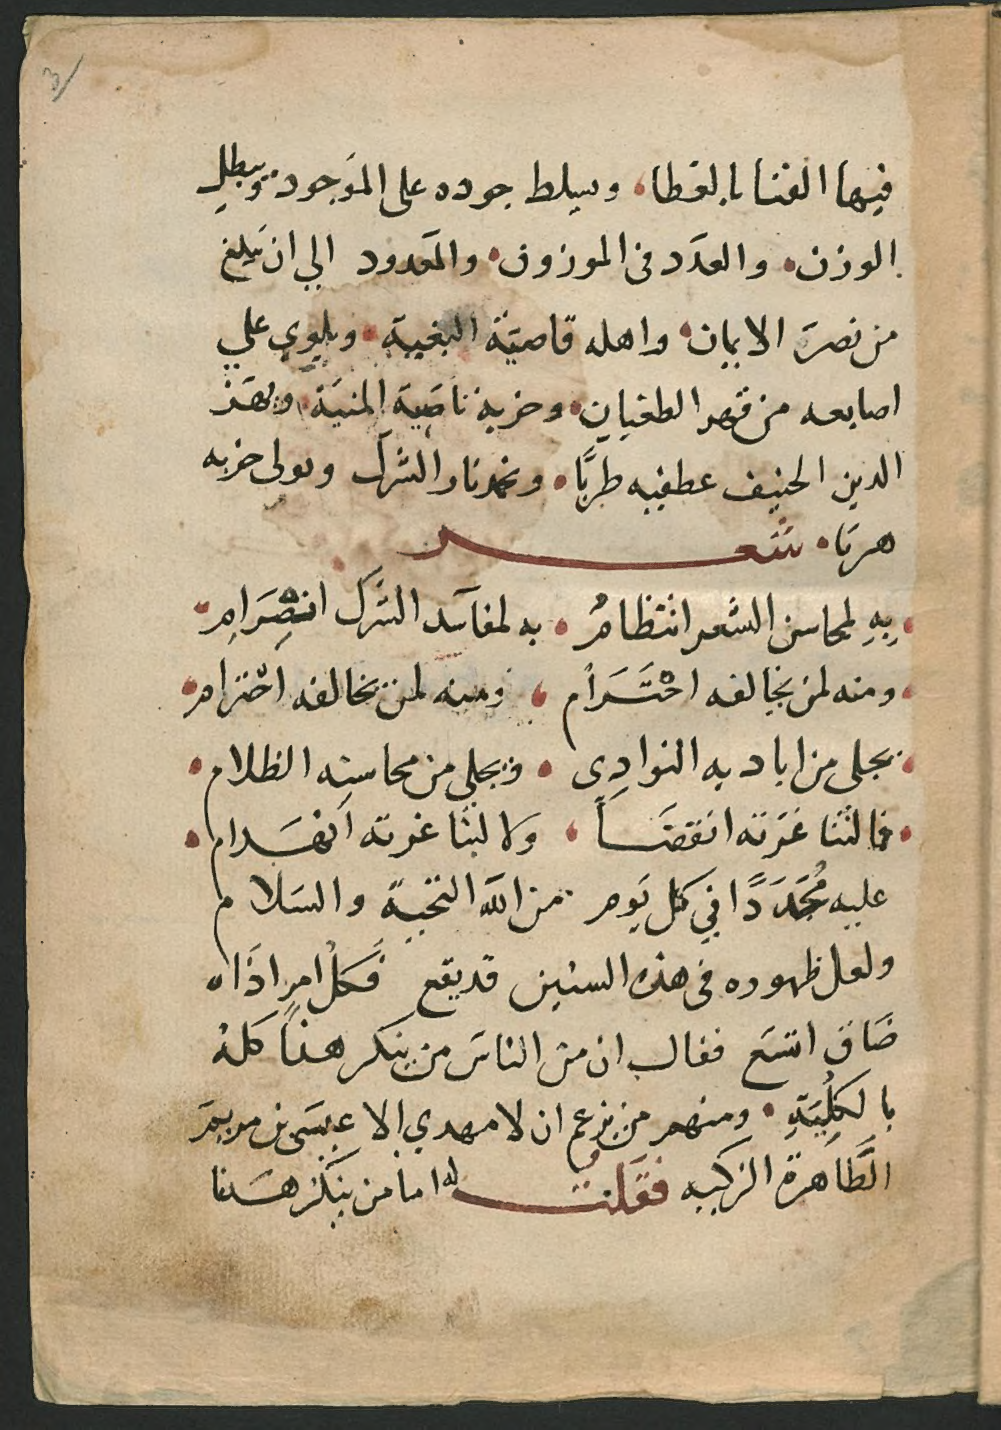 3
فيها الفنا بالعطا، وسلط جوده على الموجود ويبطل
الوزن، والعدَد في الموزون، والمَعدود الي ان يَبلغ
من نصرَ الايمان، واهله قاصيَة البغية، ويلوي علي
اصابعه من قهر الطغيان، وحزبه ناصَية المنيَة، ويهَز
الدين الحنيف عطفيه طربًا، ويخمد نار الشرك ويولي حزبه
هربَا، شعر
بِهِ لمحاسن الشعر انتظامٌ، به لمفاسَد الشرك انصِرَامِ
ومنه لمن يخالفه احْتَرَام، ومنه لمن يخالفه اخترام
تجلى من اياديه النوادِى، ويجلي من محاسنه الظلام
فما لثنا غرَته انقضَاً، ولا لبنا غرته انهَدام
عليه مُجَدَدًا في كل يَوم من اللَه التحيةَ والسَلام
ولعل ظهوره في هذه السنين قد يقع فَكلُ امرٍ اذَا
ضَاق اتسَع فقال ان من الناسَ من ينكر هذا كلهْ
بالكلِيَةِ، ومنهم من يزعم ان لا مهدي الا عيسَى بن مريمَ
الطَاهرة الزكيه فقَلتُ له اما من ينكر هَذا